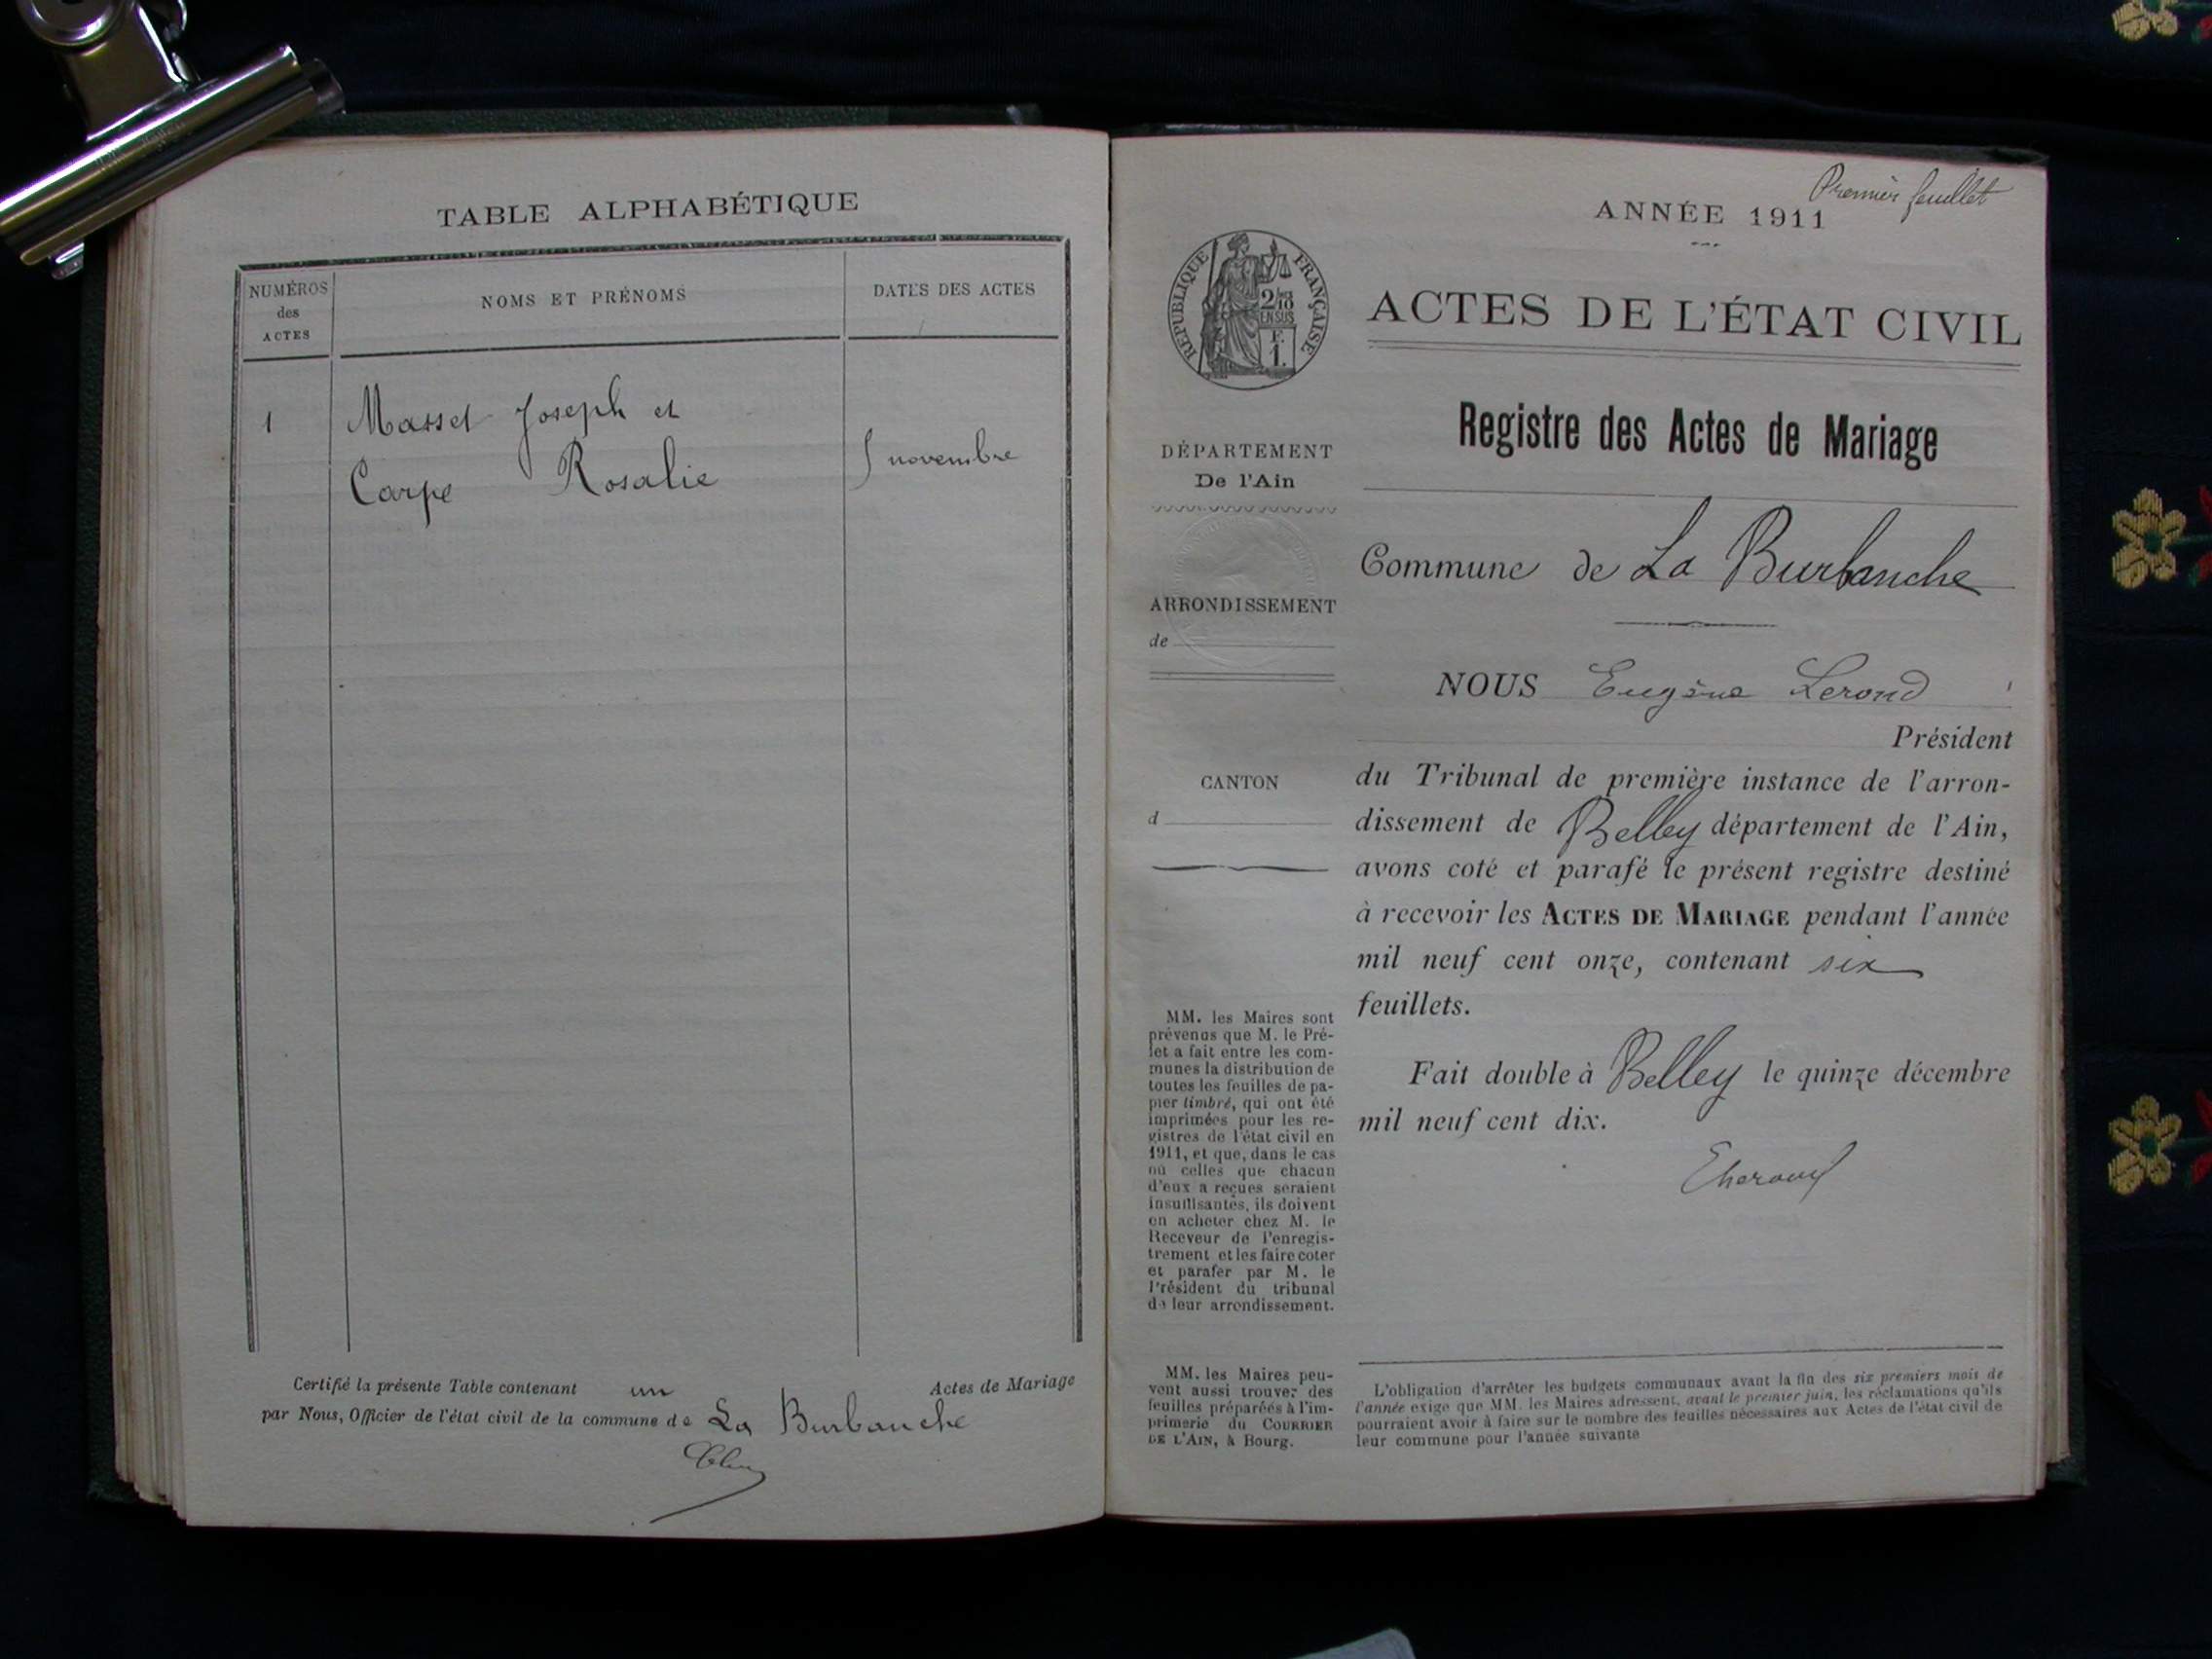 TABLE ALPHABÉTIQUE
NUMÉROS
des
ACTES
NOMS ET PRÉNOMS
DATES DES ACTES
1
Masset Joseph et
Carpe Rosalie
5 novembre
Certifié la présente Table contenant un Actes de Mariage
par Nous, Officier de l'état civil de la commune de La Burbanche
Premier feuillet
ANNÉE 1911
RÉPUBLIQUE FRANÇAISE
2/10
EN SUS
F.
1.
ACTES DE L'ÉTAT CIVIL
Registre des Actes de Mariage
DÉPARTEMENT
De l'Ain
Commune de La Burbanche
ARRONDISSEMENT
de
NOUS Eugène Lerond
Président
CANTON
d
du Tribunal de première instance de l'arron-
dissement de Belley département de l'Ain,
avons coté et parafé le présent registre destiné
à recevoir les ACTES DE MARIAGE pendant l'année
mil neuf cent onze, contenant six
feuillets.
Fait double à Belley le quinze décembre
mil neuf cent dix.
MM. les Maires sont
prévenus que M. le Pré-
fet a fait entre les com-
munes la distribution de
toutes les feuilles de pa-
pier timbré, qui ont été
imprimées pour les re-
gistres de l'état civil en
1911, et que, dans le cas
où celles que chacun
d'eux a reçues seraient
insuffisantes, ils doivent
en acheter chez M. le
Receveur de l'enregis-
trement et les faire coter
et parafer par M. le
Président du tribunal
de leur arrondissement.
MM. les Maires peu-
vent aussi trouver des
feuilles préparées à l'im-
primerie du COURRIER
DE L'AIN, à Bourg.
L'obligation d'arrêter les budgets communaux avant la fin des six premiers mois de
l'année exige que MM. les Maires adressent, avant le premier juin, les réclamations qu'ils
pourraient avoir à faire sur le nombre des feuilles nécessaires aux Actes de l'état civil de
leur commune pour l'année suivante